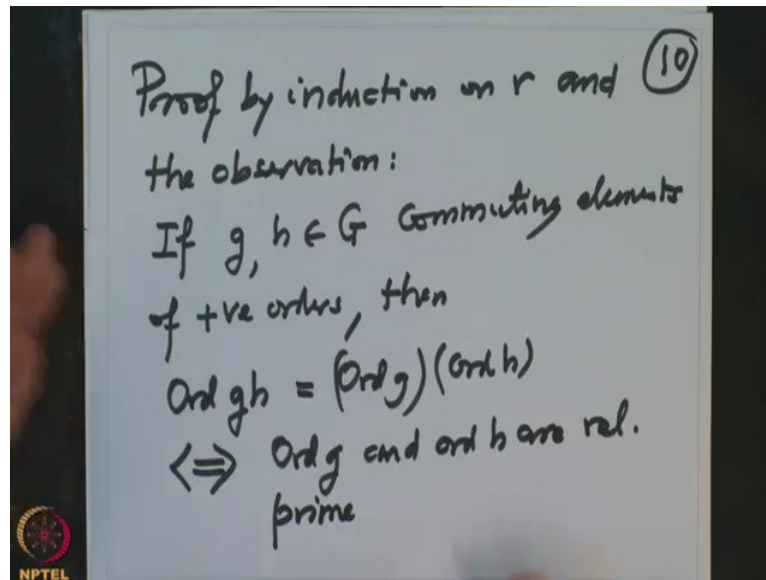 Proof by induction on r and
10
the observation:
If g, h ∈ G Commuting elements
of +ve orders, then
Ord gh = (Ord g)(ord h)
⟺ Ord g and ord h are rel.
prime
NPTEL